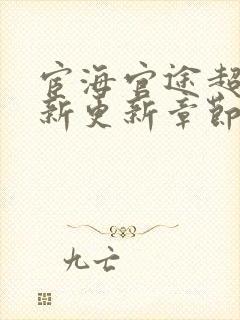 宦海官途超
新更新章節
九亡